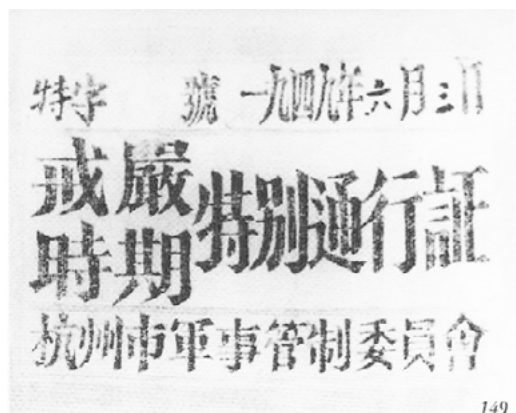 特字 號 一九四九年六月三日
戒嚴時期 特別通行証
杭州市軍事管制委員會
149